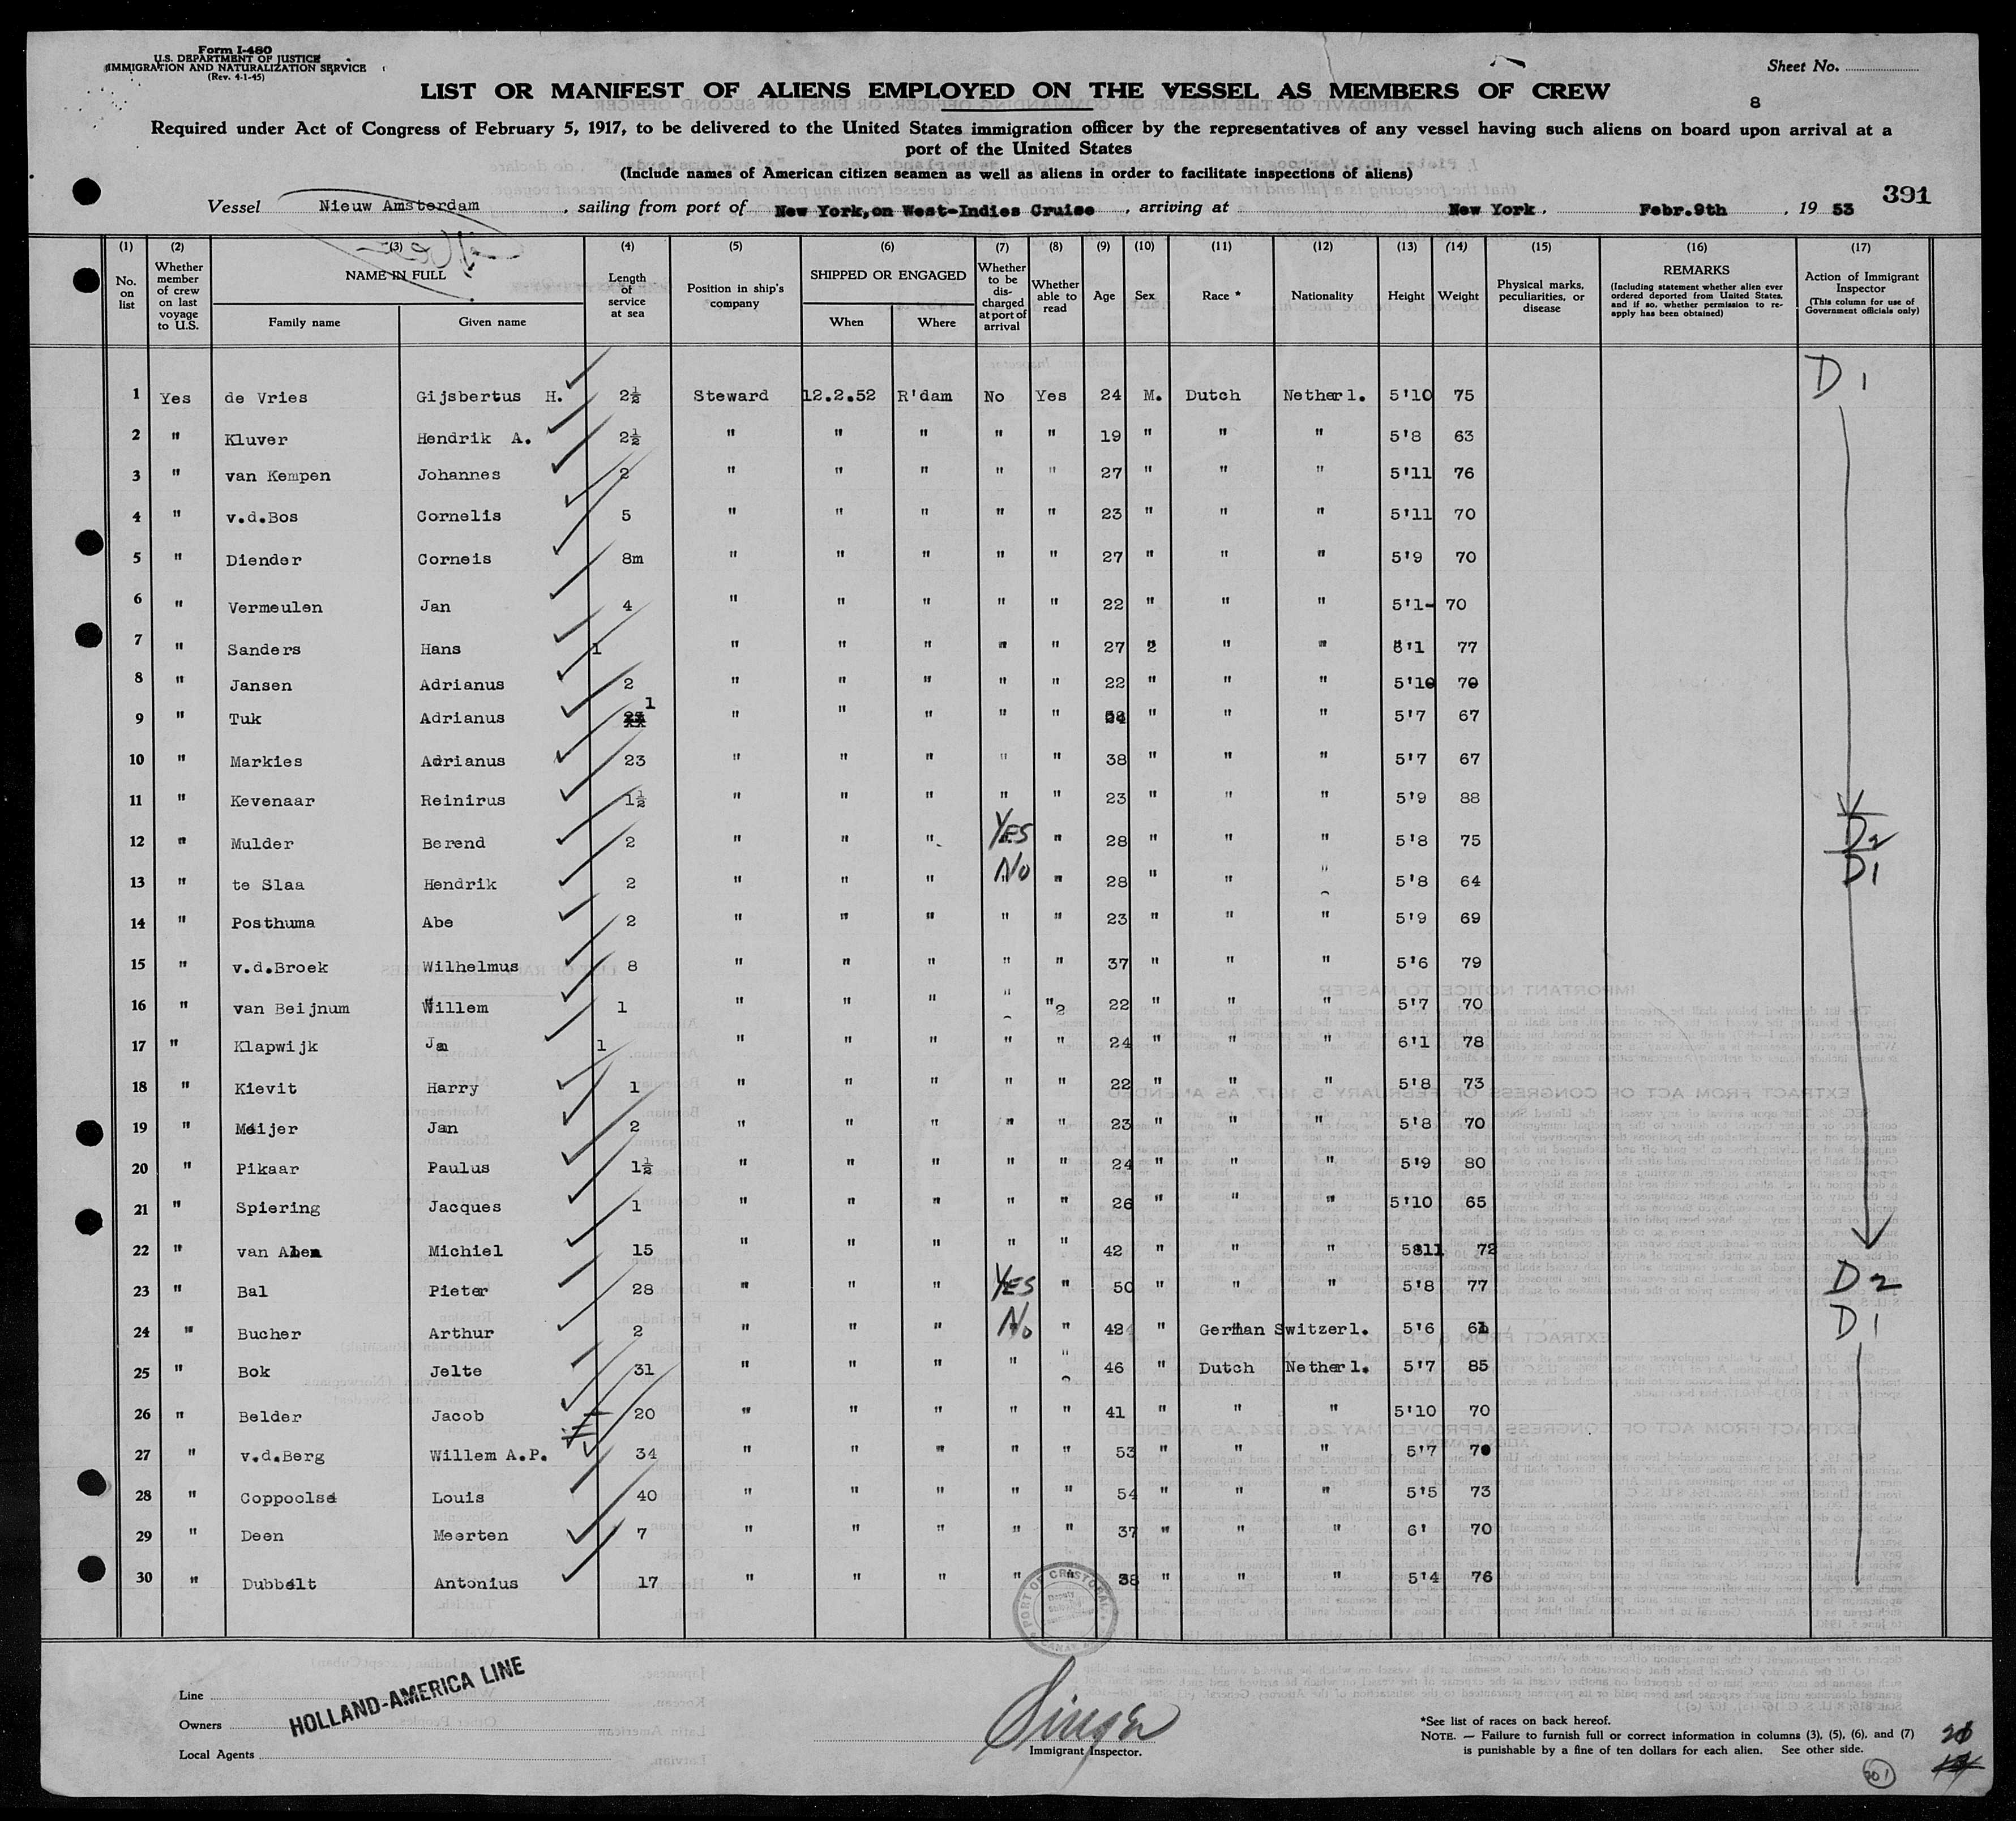 Form I-480
U.S. DEPARTMENT OF JUSTICE
IMMIGRATION AND NATURALIZATION SERVICE
(Rev. 4-1-45)
Sheet No.
8
LIST OR MANIFEST OF ALIENS EMPLOYED ON THE VESSEL AS MEMBERS OF CREW
Required under Act of Congress of February 5, 1917, to be delivered to the United States immigration officer by the representatives of any vessel having such aliens on board upon arrival at a
port of the United States
(Include names of American citizen seamen as well as aliens in order to facilitate inspections of aliens)
391
Vessel Nieuw Amsterdam, sailing from port of New York, on West-Indies Cruise, arriving at New York, Febr.9th, 19 53
(1) (2) (3) (4) (5) (6) (7) (8) (9) (10) (11) (12) (13) (14) (15) (16) (17)
No. on list
Whether member of crew on last voyage to U.S.
NAME IN FULL
Family name
Given name
Length of service at sea
Position in ship's company
SHIPPED OR ENGAGED
When
Where
Whether to be discharged at port of arrival
Whether able to read
Age
Sex
Race *
Nationality
Height
Weight
Physical marks, peculiarities, or disease
REMARKS
(Including statement whether alien ever ordered deported from United States, and if so, whether permission to re-apply has been obtained)
Action of Immigrant Inspector
(This column for use of Government officials only)
1 Yes de Vries Gijsbertus H. 2½ Steward 12.2.52 R'dam No Yes 24 M. Dutch Netherl. 5'10 75 D 1
2 " Kluver Hendrik A. 2½ " " " " " 19 " " " 5'8 63
3 " van Kempen Johannes 2 " " " " " 27 " " " 5'11 76
4 " v.d.Bos Cornelis 5 " " " " " 23 " " " 5'11 70
5 " Diender Corneis 8m " " " " " 27 " " " 5'9 70
6 " Vermeulen Jan 4 " " " " " 22 " " " 5'1- 70
7 " Sanders Hans 1 " " " " " 27 " " '1 77
8 " Jansen Adrianus 2 " " " " " 22 " " " 5'10 70
9 " Tuk Adrianus 1 " " " " " " " " 5'7 67
10 " Markies Adrianus 23 " " " " " 38 " " " 5'7 67
11 " Kevenaar Reinirus 1½ " " " " " 23 " " " 5'9 88
12 " Mulder Berend 2 " " " YES " 28 " " " 5'8 75 D2
13 " te Slaa Hendrik 2 " " " No " 28 " " " 5'8 64 D1
14 " Posthuma Abe 2 " " " " " 23 " " " 5'9 69
15 " v.d.Broek Wilhelmus 8 " " " " " 37 " " " 5'6 79
16 " van Beijnum Willem 1 " " " " "2 22 " " " 5'7 70
17 " Klapwijk Jan 1 " " " " " 24 " " " 6'1 78
18 " Kievit Harry 1 " " " " " 22 " " " 5'8 73
19 " Meijer Jan 2 " " " " " 23 " " " 5'8 70
20 " Pikaar Paulus 1½ " " " " " 24 " " " 5'9 80
21 " Spiering Jacques 1 " " " " " 26 " " " 5'10 65
22 " van Michiel 15 " " " " " 42 " " " 5811 72
23 " Bal Pieter 28 " " " YES " 50 " " " 5'8 77 D2
24 " Bucher Arthur 2 " " " No " 42 " German Switzerl. 5'6 D 1
25 " Bok Jelte 31 " " " " " 46 " Dutch Netherl. 5'7 85
26 " Belder Jacob 20 " " " " " 41 " " " 5'10 70
27 " v.d.Berg Willem A.P. 34 " " " " " 53 " " " 5'7 70
28 " Coppoolse Louis 40 " " " " " 54 " " " 5'5 73
29 " Deen Meerten 7 " " " " " 37 " " " 6' 70
30 " Dubbelt Antonius 17 " " " " " 38 " " " 5'4 76
PORT OF CRISTOBAL
Line
Owners
Local Agents
HOLLAND-AMERICA LINE
Singer
Immigrant Inspector.
*See list of races on back hereof.
NOTE. — Failure to furnish full or correct information in columns (3), (5), (6), and (7)
is punishable by a fine of ten dollars for each alien. See other side.